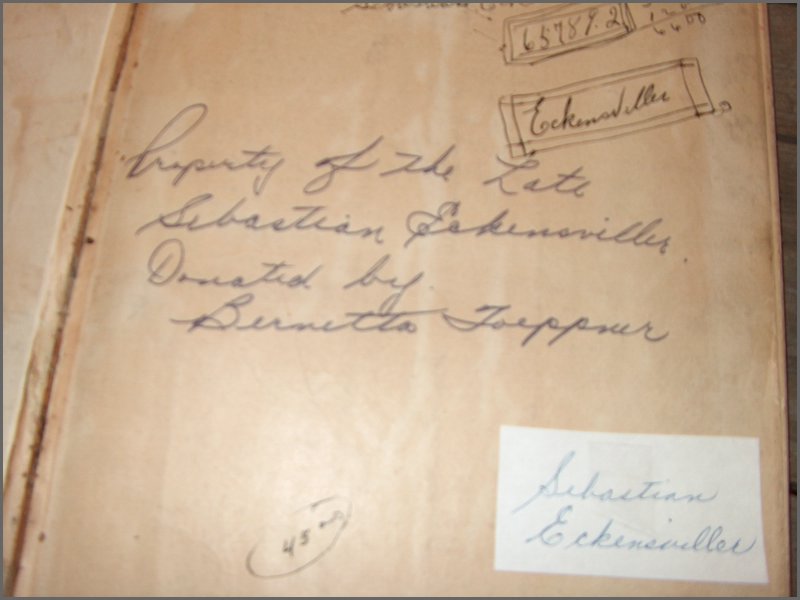 Sebastian
65789.2
6600
Eckensviller
Property of the Late
Sebastian Eckensviller.
Donated by.
Bernetta Toeppner
45
Sebastian
Eckensviller